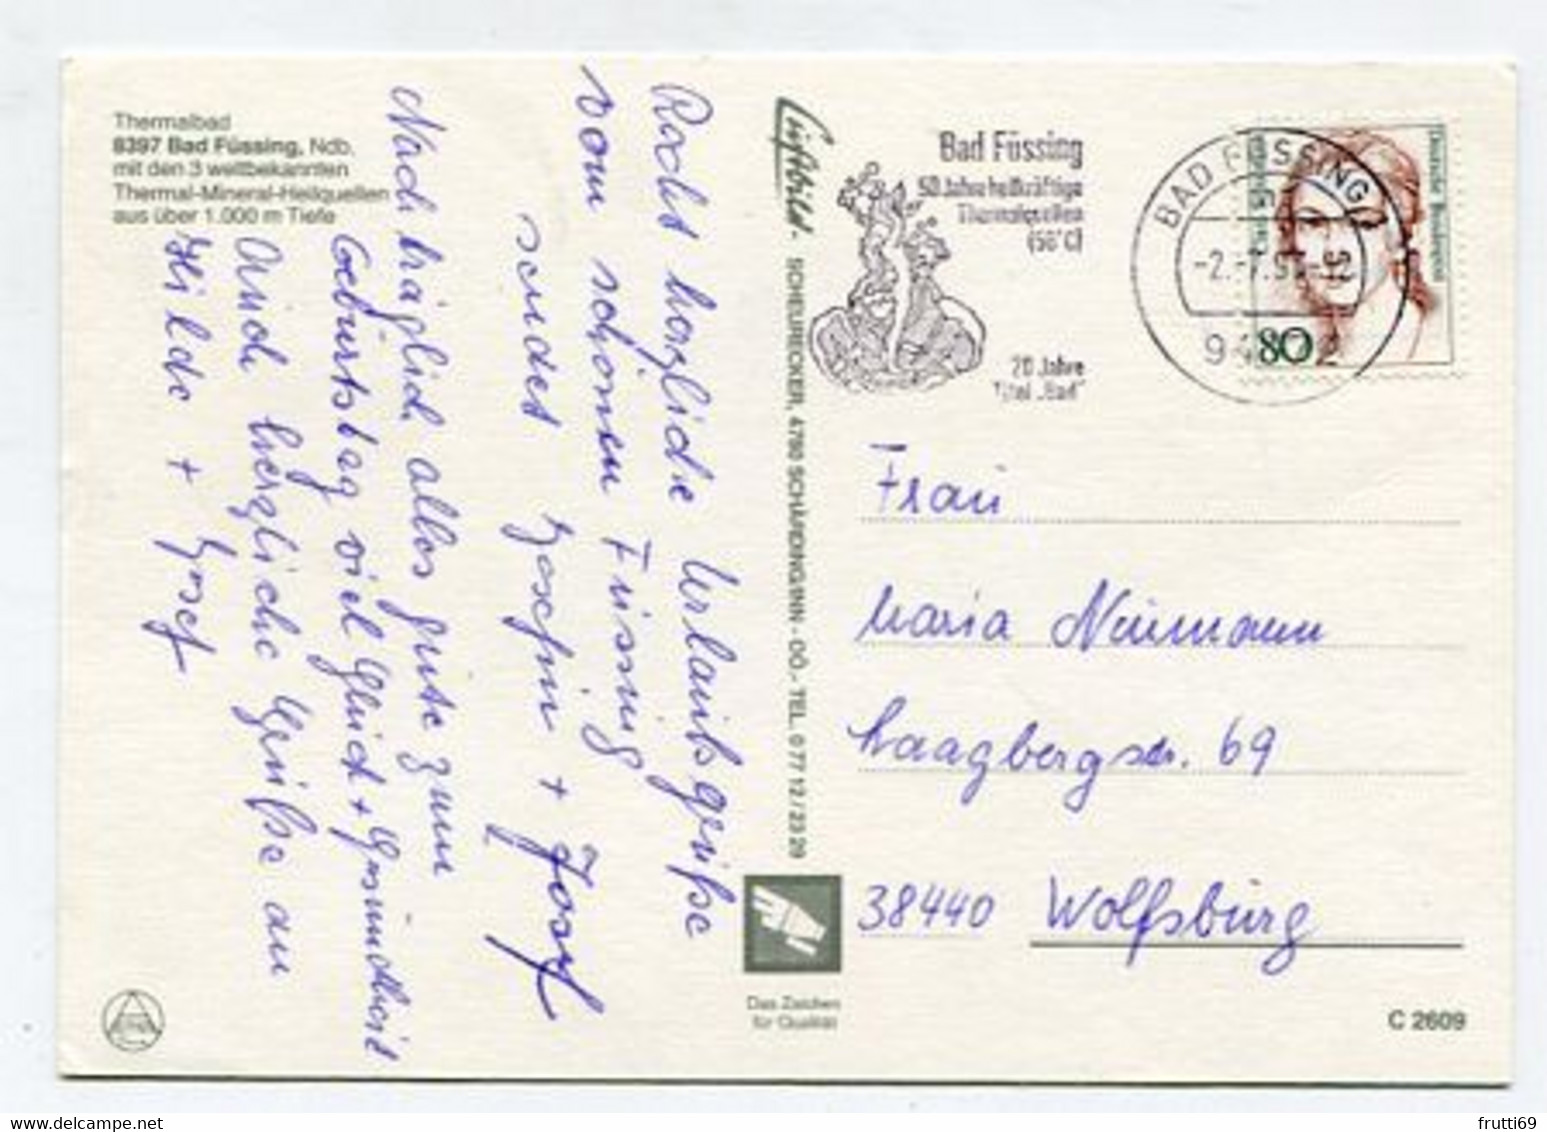 Thermalbad
8397 Bad Füssing, Ndb.
mit den 3 weltbekannten
Thermal-Mineral-Heilquellen
aus über 1.000 m Tiefe
Recht herzliche Urlaubsgrüße
vom schönen Füssing
sendet
+ Josef
Nachträglich alles gute zum
Geburtstag viel Glück + Gesundheit
Auch herzliche Grüße an
Hilde + Josef
Luftbild - SCHEURECKER, 4780 SCHÄRDING/INN - OÖ - TEL. 0 77 12 / 23 29
Das Zeichen
für Qualität
Bad Füssing
50 Jahre heilkräftige
Thermalquellen
(56°C)
20 Jahre
Titel „Bad"
BAD FÜSSING
-2.-7.9
Deutsche Bundespost
80
Frau
Maria Neumann
Laagbergstr. 69
38440 Wolfsburg
C 2609
frutti69